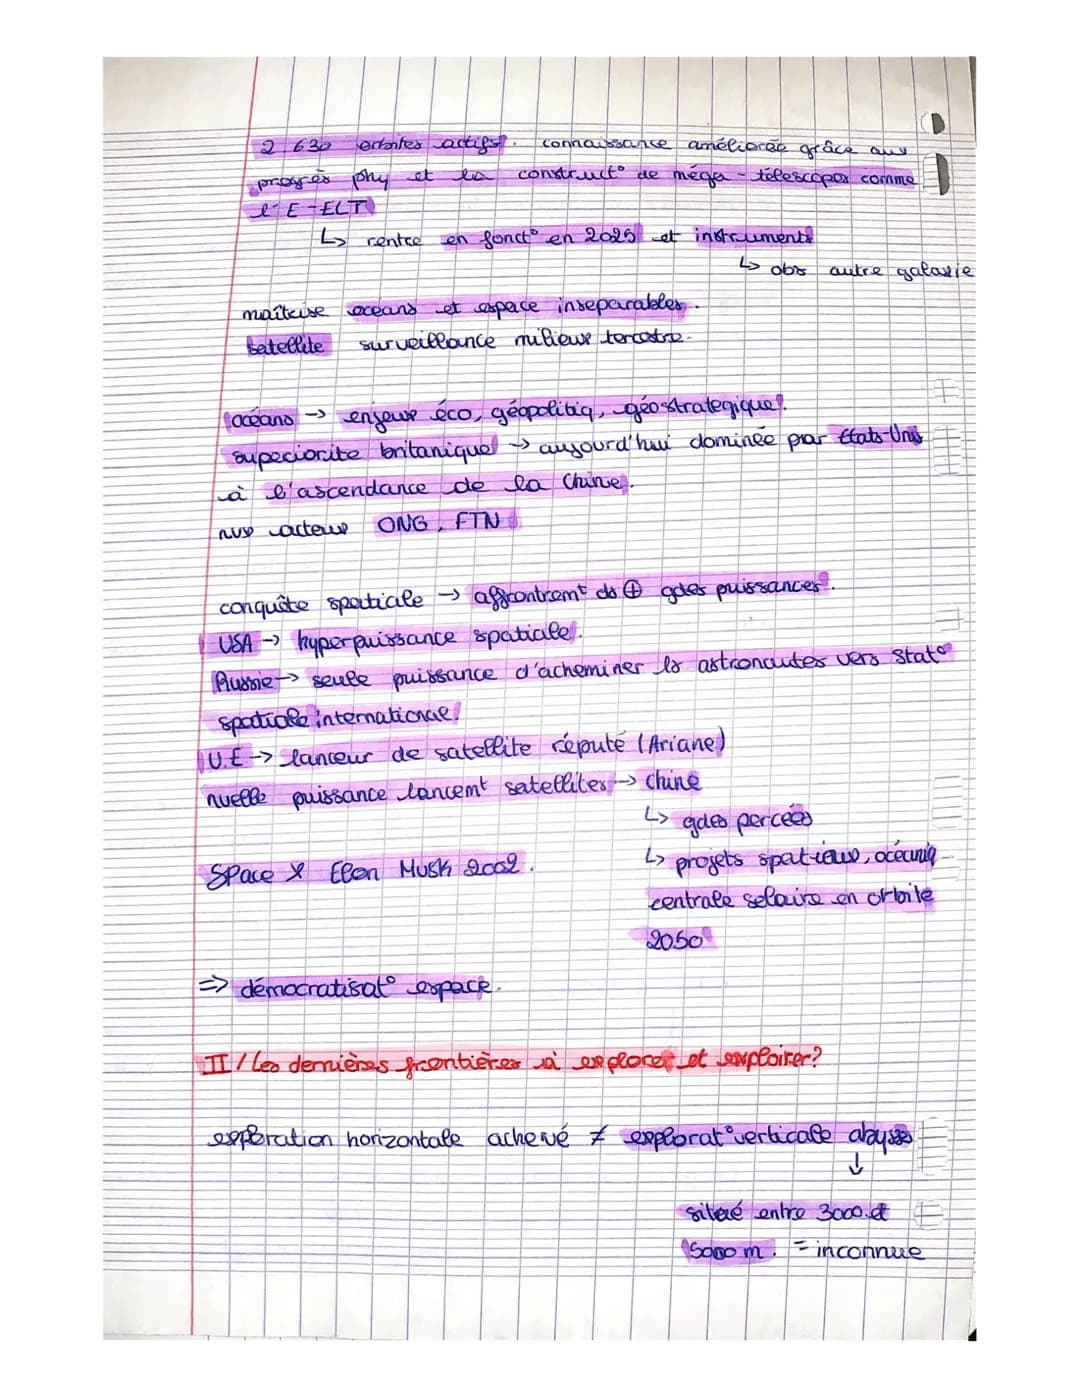 2 630 orbites actifs. connaissance améliorée grâce aux
progrès phy et la construct° de méga-télescopes comme
l'E-ELT
↳ rentre en fonct° en 2025 et instruments
↳ obs autre galaxie
maîtrise océans et espace inséparables.
satellite surveillance milieux terrestre.
océans → enjeux éco, géopolitiq, géostrategique.
superiorite britanique → aujourd'hui dominée par Etats-Unis
à l'ascendance de la Chine.
nvx acteurs ONG, FTN
conquête spatiale → affrontremt ds ⊕ gdes puissances.
USA → hyperpuissance spatiale.
Russie → seule puissance d'acheminer ls astronautes vers stat°
spatiale internationale.
U.E → lanceur de satellite réputé (Ariane)
nvelle puissance lancemt satellites → chine
↳ gdes percées
↳ projets spatiaux, océaniq
SPace X Elon Musk 2002.
centrale solaire en orbite
2050
=> démocratisat° espace.
II / Les dernières frontières à explorer et exploiter?
exploration horizontale achevé ≠ explorat° verticale abysses
↓
situé entre 3000 et
5000 m. = inconnue